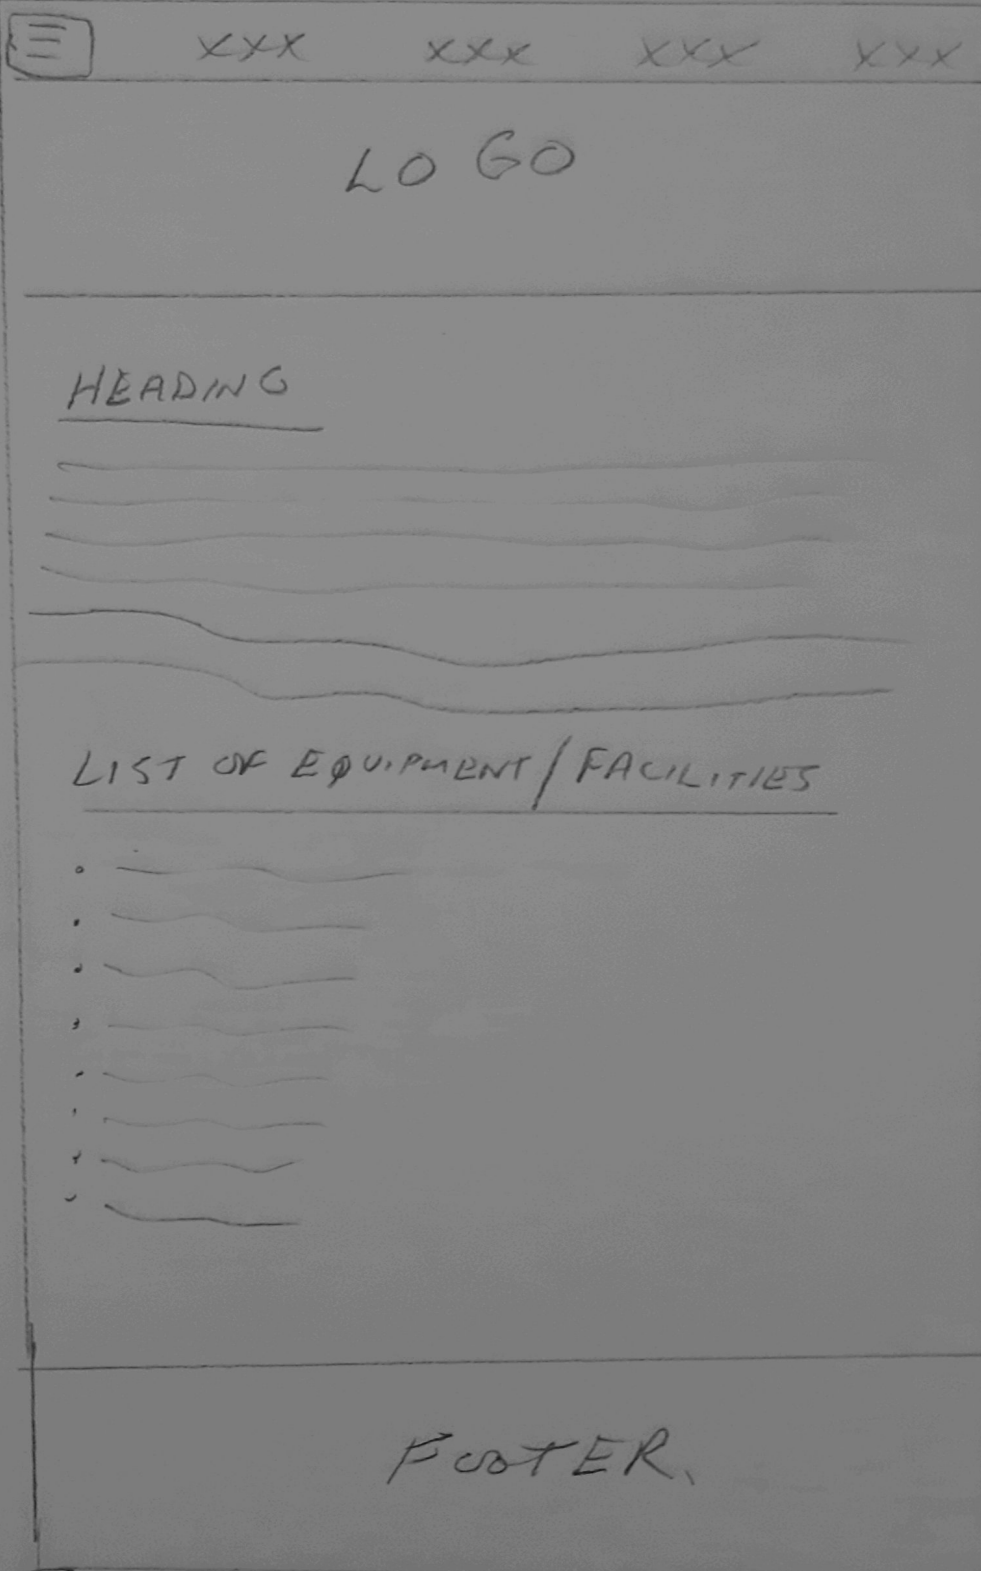 XXX XXX XXX XXX
LOGO
HEADING
LIST OF EQUIPMENT/FACILITIES
FOOTER.